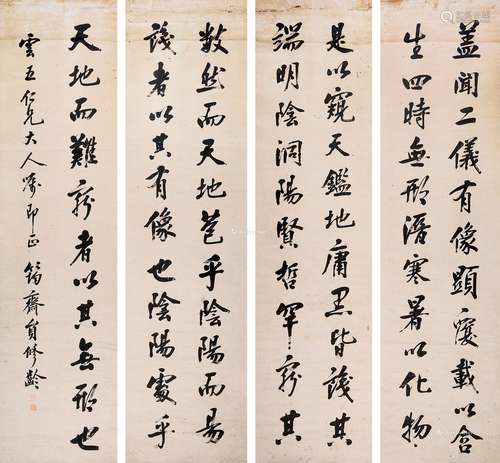 蓋聞二儀有像顯覆載以含
生四時無形潛寒暑以化物
是以窺天鑑地庸愚皆識其
端明陰洞陽賢哲罕窮其
數然而天地苞乎陰陽而易
識者以其有像也陰陽處乎
天地而難窮者以其無形也
雲五仁兄大人屬即正 筠齋貟修齡